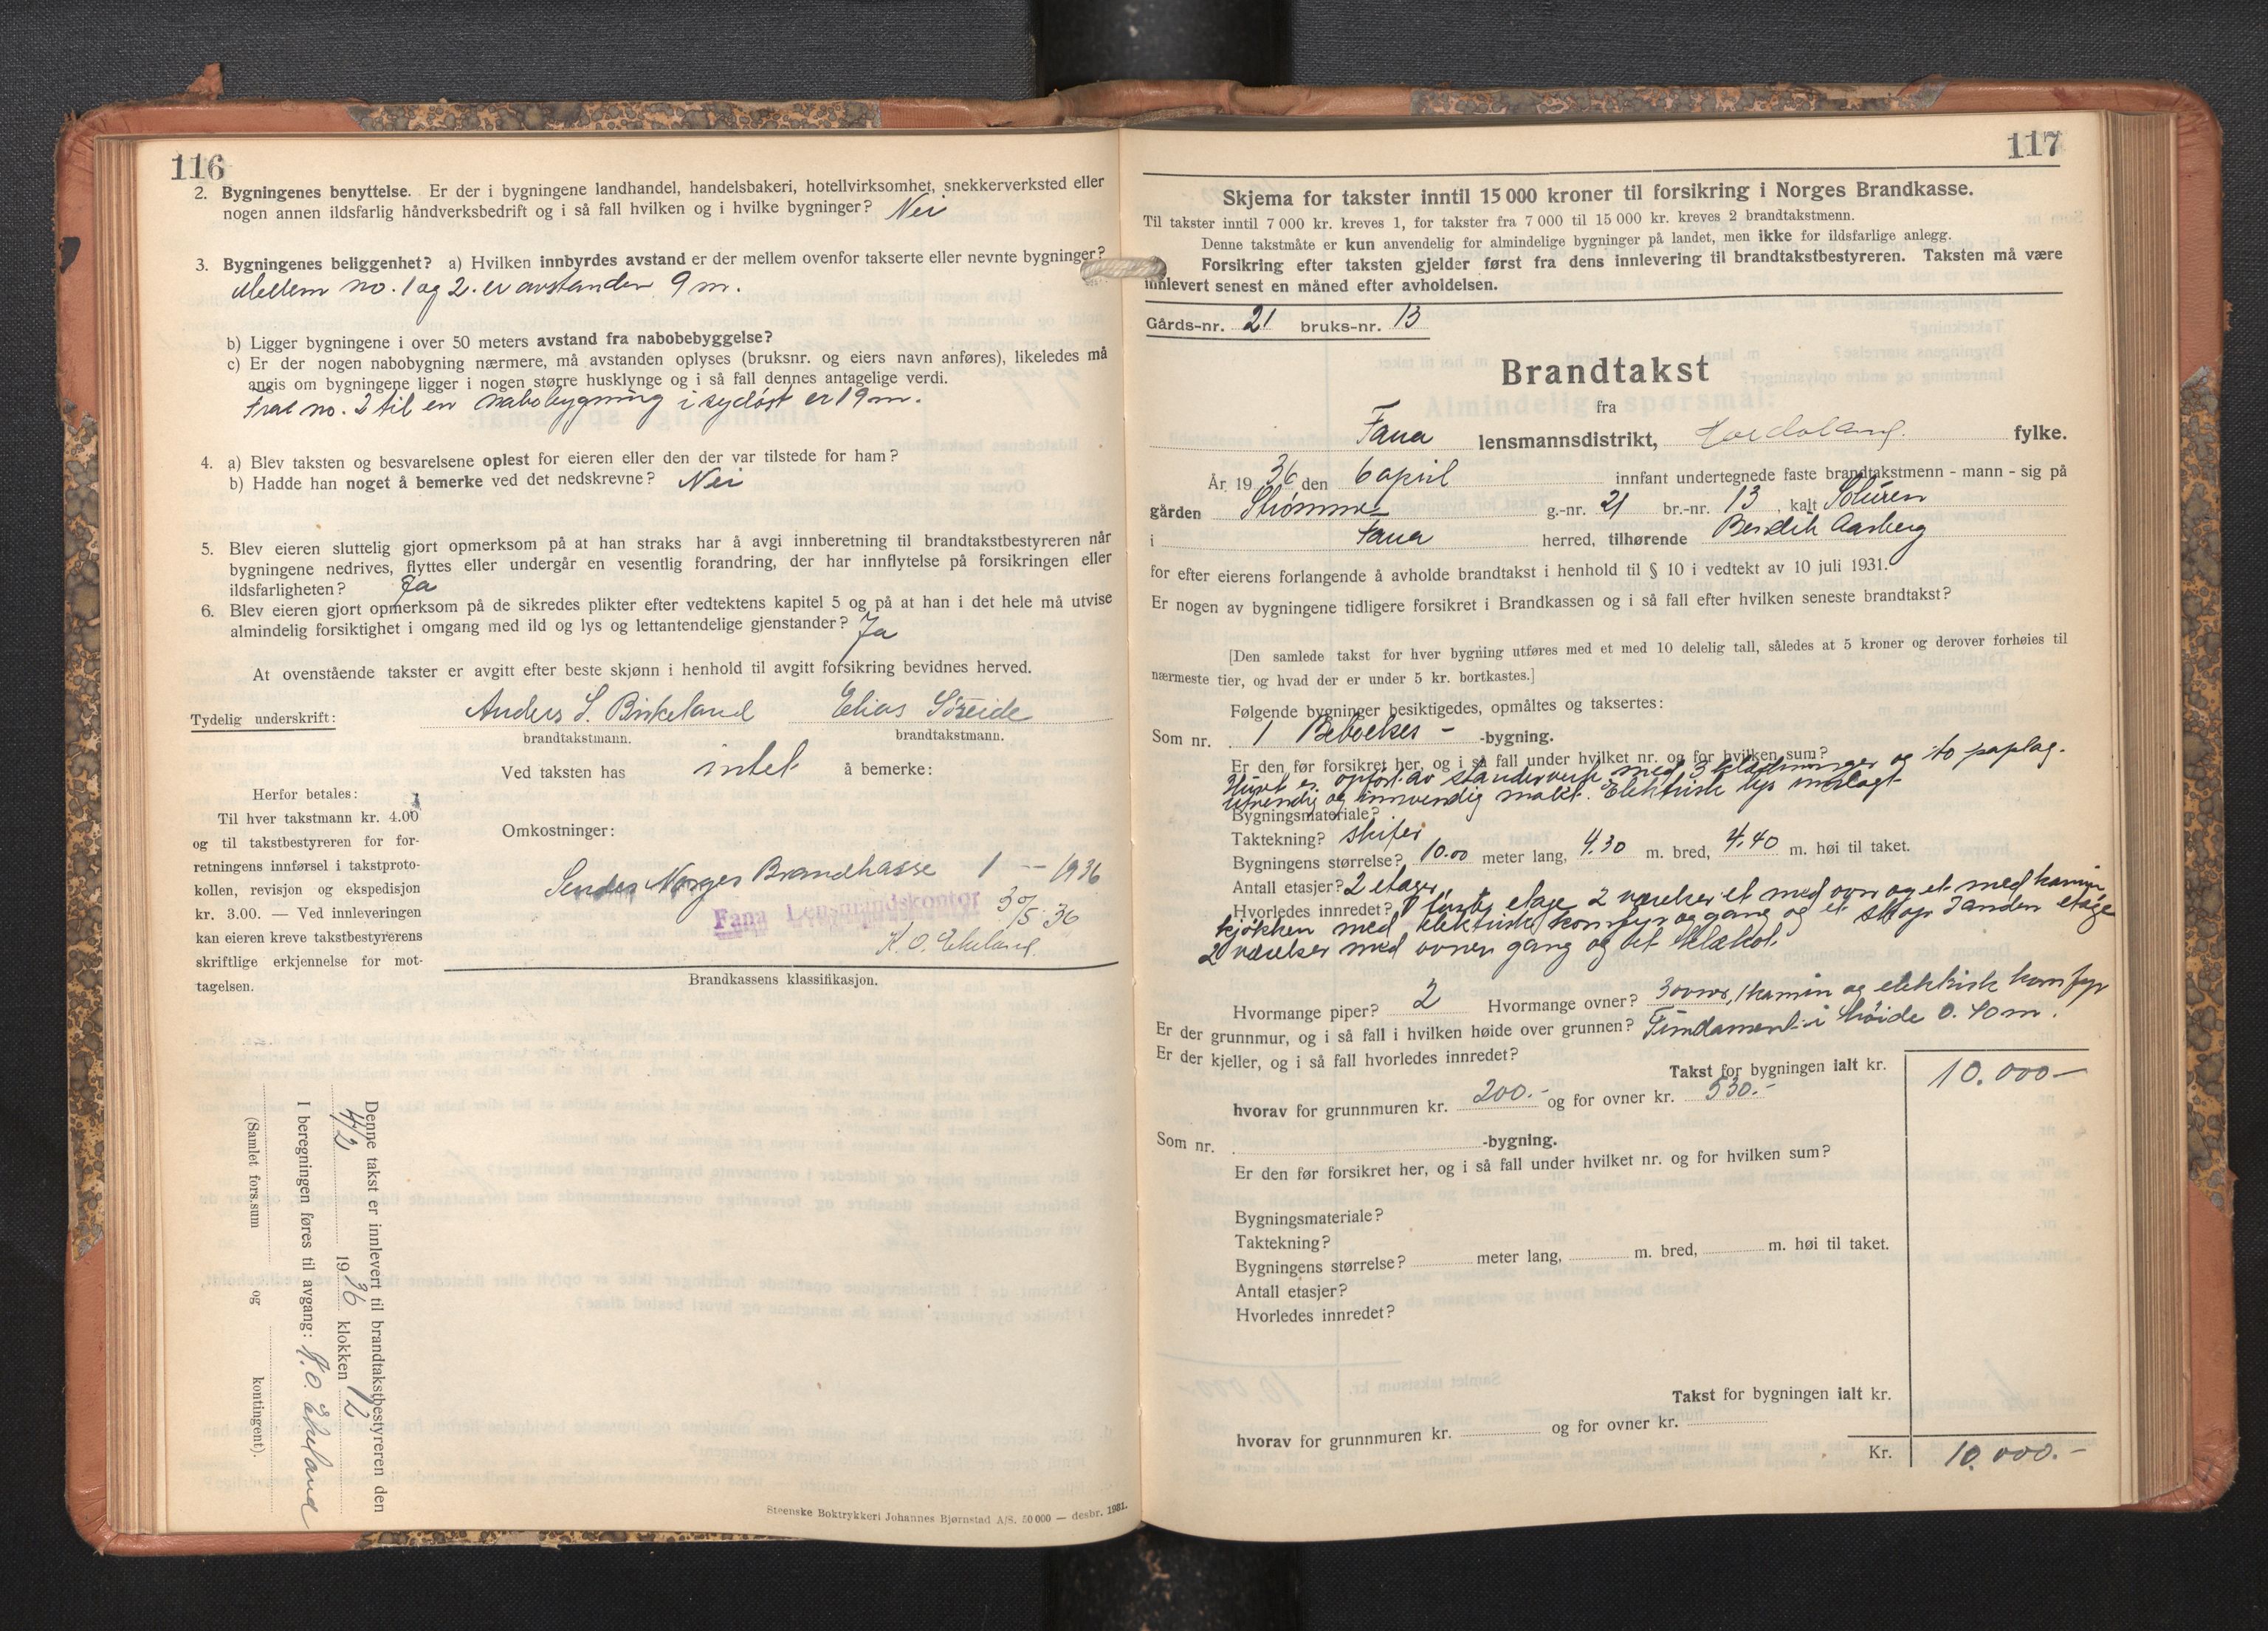 116
2. Bygningenes benyttelse. Er der i bygningene landhandel, handelsbakeri, hotellvirksomhet, snekkerverksted eller
nogen annen ildsfarlig håndverksbedrift og i så fall hvilken og i hvilke bygninger? Nei
3. Bygningenes beliggenhet? a) Hvilken innbyrdes avstand er der mellem ovenfor takserte eller nevnte bygninger?
Mellem no. 1 og 2. er avstanden 9 m.
b) Ligger bygningene i over 50 meters avstand fra nabobebyggelse?
c) Er der nogen nabobygning nærmere, må avstanden oplyses (bruksnr. og eiers navn anføres), likeledes må
angis om bygningene ligger i nogen større husklynge og i så fall dennes antagelige verdi.
Fra no. 2 til en nabobygning i sydøst er 19 m.
4. a) Blev taksten og besvarelsene oplest for eieren eller den der var tilstede for ham?
b) Hadde han noget å bemerke ved det nedskrevne? Nei
5. Blev eieren sluttelig gjort opmerksom på at han straks har å avgi innberetning til brandtakstbestyreren når
bygningene nedrives, flyttes eller undergår en vesentlig forandring, der har innflytelse på forsikringen eller
ildsfarligheten? Ja
6. Blev eieren gjort opmerksom på de sikredes plikter efter vedtektens kapitel 5 og på at han i det hele må utvise
almindelig forsiktighet i omgang med ild og lys og lettantendelige gjenstander? Ja
At ovenstående takster er avgitt efter beste skjønn i henhold til avgitt forsikring bevidnes herved.
Tydelig underskrift: Anders S. Birkeland Elias Søreide
brandtakstmann. brandtakstmann.
Ved taksten has intet å bemerke:
Herfor betales:
Til hver takstmann kr. 4.00
og til takstbestyreren for for-
retningens innførsel i takstproto-
kollen, revisjon og ekspedisjon
kr. 3.00. — Ved innleveringen
kan eieren kreve takstbestyrerens
skriftlige erkjennelse for mot-
tagelsen.
Omkostninger:
Sendes Norges Brandkasse 1 — 1936
Fana Lensmandskontor 30/5 36
K. O. Ekeland
Brandkassens klassifikasjon.
Denne takst er innlevert til brandtakstbestyreren den
4/2 1936 klokken 12
I beregningen føres til avgang: K. O. Ekeland
(Samlet fors.sum og kontingent).
Steenske Boktrykkeri Johannes Bjørnstad A/S. 50 000 — desbr. 1931.
117
Skjema for takster inntil 15 000 kroner til forsikring i Norges Brandkasse.
Til takster inntil 7 000 kr. kreves 1, for takster fra 7 000 til 15 000 kr. kreves 2 brandtakstmenn.
Denne takstmåte er kun anvendelig for almindelige bygninger på landet, men ikke for ildsfarlige anlegg.
Forsikring efter taksten gjelder først fra dens innlevering til brandtakstbestyreren. Taksten må være
innlevert senest en måned efter avholdelsen.
Gårds-nr. 21 bruks-nr. 13
Brandtakst
fra
Fana lensmannsdistrikt, Hordaland fylke.
År 1936 den 6 april innfant undertegnede faste brandtakstmenn - mann - sig på
gården Strømme g.-nr. 21 br.-nr. 13, kalt
i Fana herred, tilhørende Bendik Aarberg
for efter eierens forlangende å avholde brandtakst i henhold til § 10 i vedtekt av 10 juli 1931.
Er nogen av bygningene tidligere forsikret i Brandkassen og i så fall efter hvilken seneste brandtakst?
[Den samlede takst for hver bygning utføres med et med 10 delelig tall, således at 5 kroner og derover forhøies til
nærmeste tier, og hvad der er under 5 kr. bortkastes.]
Følgende bygninger besiktigedes, opmåltes og taksertes:
Som nr. 1 Beboelses - -bygning.
Er den før forsikret her, og i så fall under hvilket nr. og for hvilken sum?
Huset er opført av standerverk med 3 klædninger og to paplag.
Utvendig og innvendig malet. Elektrisk lys innlagt
Bygningsmateriale?
Taktekning? skifer
Bygningens størrelse? 10.00 meter lang, 4.30 m. bred, 4.40 m. høi til taket.
Antall etasjer? 2 etager
Hvorledes innredet? I første etage 2 værelser et med ovn og et med kamin
kjøkken med elektrisk komfyr og gang og et skap I anden etage
2 værelser med ovner gang og et
Hvormange piper? 2 Hvormange ovner? 3 ovner, 1 kamin og elektrisk komfyr
Er der grunnmur, og i så fall i hvilken høide over grunnen? Fundament i høide 0.40 m.
Er der kjeller, og i så fall hvorledes innredet?
Takst for bygningen ialt kr. 10.000 —
hvorav for grunnmuren kr. 200.- og for ovner kr. 530.-
Som nr. -bygning.
Er den før forsikret her, og i så fall under hvilket nr. og for hvilken sum?
Bygningsmateriale?
Taktekning?
Bygningens størrelse? meter lang, m. bred, m. høi til taket.
Antall etasjer?
Hvorledes innredet?
Takst for bygningen ialt kr.
hvorav for grunnmuren kr. og for ovner kr.
Kr. 10.000.-